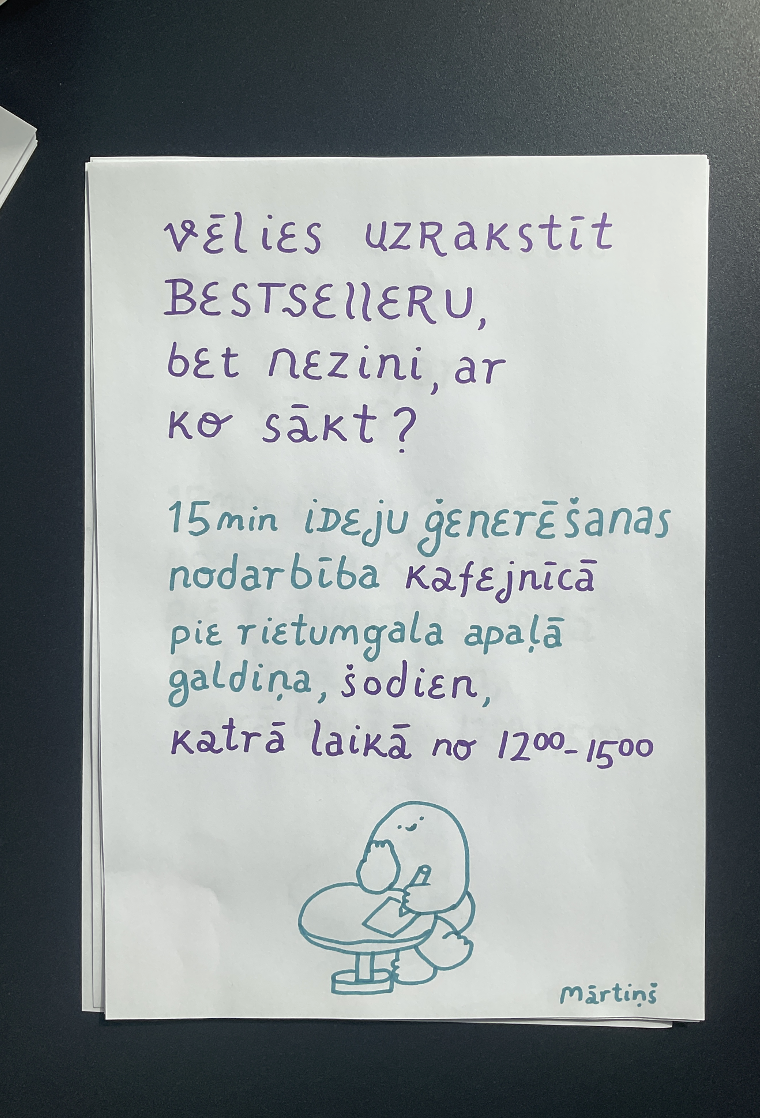 Vēlies uzrakstīt
BESTSELLERU,
bet nezini, ar
ko sākt?
15min ideju ģenerēšanas
nodarbība kafejnīcā
pie rietumgala apaļā
galdiņa, šodien,
katrā laikā no 12⁰⁰-15⁰⁰
Mārtiņš